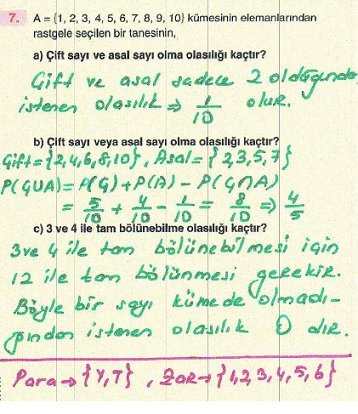 7. A = {1, 2, 3, 4, 5, 6, 7, 8, 9, 10} kümesinin elemanlarından
rastgele seçilen bir tanesinin,
a) Çift sayı ve asal sayı olma olasılığı kaçtır?
Çift ve asal sadece 2 olduğundan
istenen olasılık ⇒ 1/10 olur.
b) Çift sayı veya asal sayı olma olasılığı kaçtır?
Çift={2,4,6,8,10}, Asal={2,3,5,7}
P(ÇUA)=P(Ç)+P(A)-P(Ç∩A)
= 5/10 + 4/10 - 1/10 = 8/10 ⇒ 4/5
c) 3 ve 4 ile tam bölünebilme olasılığı kaçtır?
3 ve 4 ile tam bölünebilmesi için
12 ile tam bölünmesi gerekir.
Böyle bir sayı kümede olmadı-
ğından istenen olasılık 0 dır.
Para→{Y,T}, Zar→{1,2,3,4,5,6}